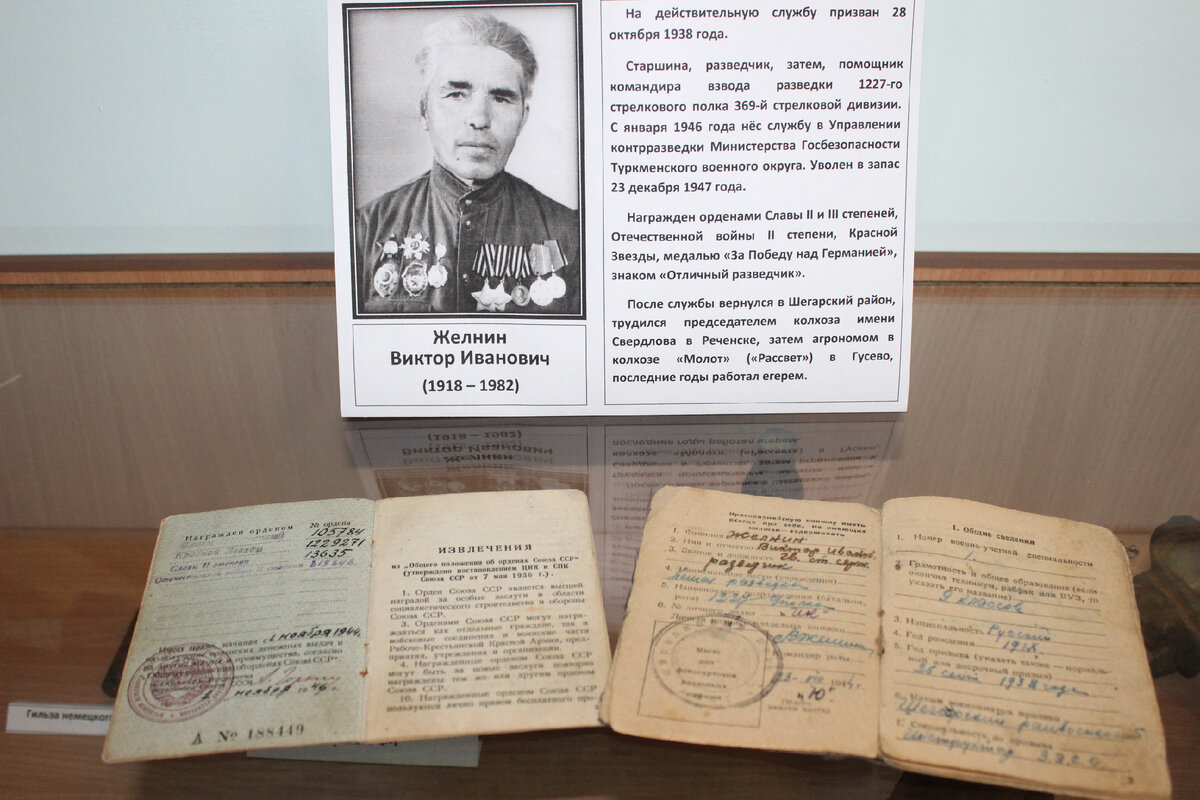 На действительную службу призван 28
октября 1938 года.
Старшина, разведчик, затем, помощник
командира взвода разведки 1227-го
стрелкового полка 369-й стрелковой дивизии.
С января 1946 года нёс службу в Управлении
контрразведки Министерства Госбезопасности
Туркменского военного округа. Уволен в запас
23 декабря 1947 года.
Награжден орденами Славы II и III степеней,
Отечественной войны II степени, Красной
Звезды, медалью «За Победу над Германией»,
знаком «Отличный разведчик».
После службы вернулся в Шегарский район,
трудился председателем колхоза имени
Свердлова в Реченске, затем агрономом в
колхозе «Молот» («Рассвет») в Гусево,
последние годы работал егерем.
Желнин
Виктор Иванович
(1918 – 1982)
Награжден орденом
№ ордена
105784
Красной Звезды 1229271
Славы II степени 13635
Отечественной войны II степени
начиная с 1 ноября 1944
ноября 1946
А № 188449
ИЗВЛЕЧЕНИЯ
из „Общего положения об орденах Союза ССР“
(утверждено постановлением ЦИК и СНК
Союза ССР от 7 мая 1936 г.).
1. Орден Союза ССР является высшей
наградой за особые заслуги в области
социалистического строительства и обороны
Союза ССР.
3. Орденами Союза ССР могут награ-
ждаться как отдельные граждане, так и
войсковые соединения и воинские части
Рабоче-Крестьянской Красной Армии, пред-
приятия, учреждения и организации.
4. Награжденные орденом Союза ССР
могут быть на новые заслуги повторно
награждены тем же или другим орденом
Союза ССР.
10. Награжденные орденом Союза ССР
пользуются лично правом бесплатного про-
Красноармейскую книжку иметь
всегда при себе. Не имеющих
книжки — задерживать
1. Фамилия Желнин
2. Имя и отчество Виктор Иванов.
3. Звание и должность гв. ст. серж.
разведчик
5. Наименование подразделения (батальон,
рота)
6. № личного знака
Личная подпись владельца книжки
Место
для
фотокарточки
Командир роты
23 VIII 1944 г.
I. Общие сведения
1. Номер военно-учетной специальности
2. Грамотность и общее образование (если
окончил техникум, рабфак или ВУЗ, то
указать его название)
9 классов
3. Национальность Русский
4. Год рождения 1918
5. Год призыва (указать также — нормаль-
ный или досрочный призыв)
28 сент 1938 года
Шегарский райвоенкомат
Инструктор
3
Гильза немецкого